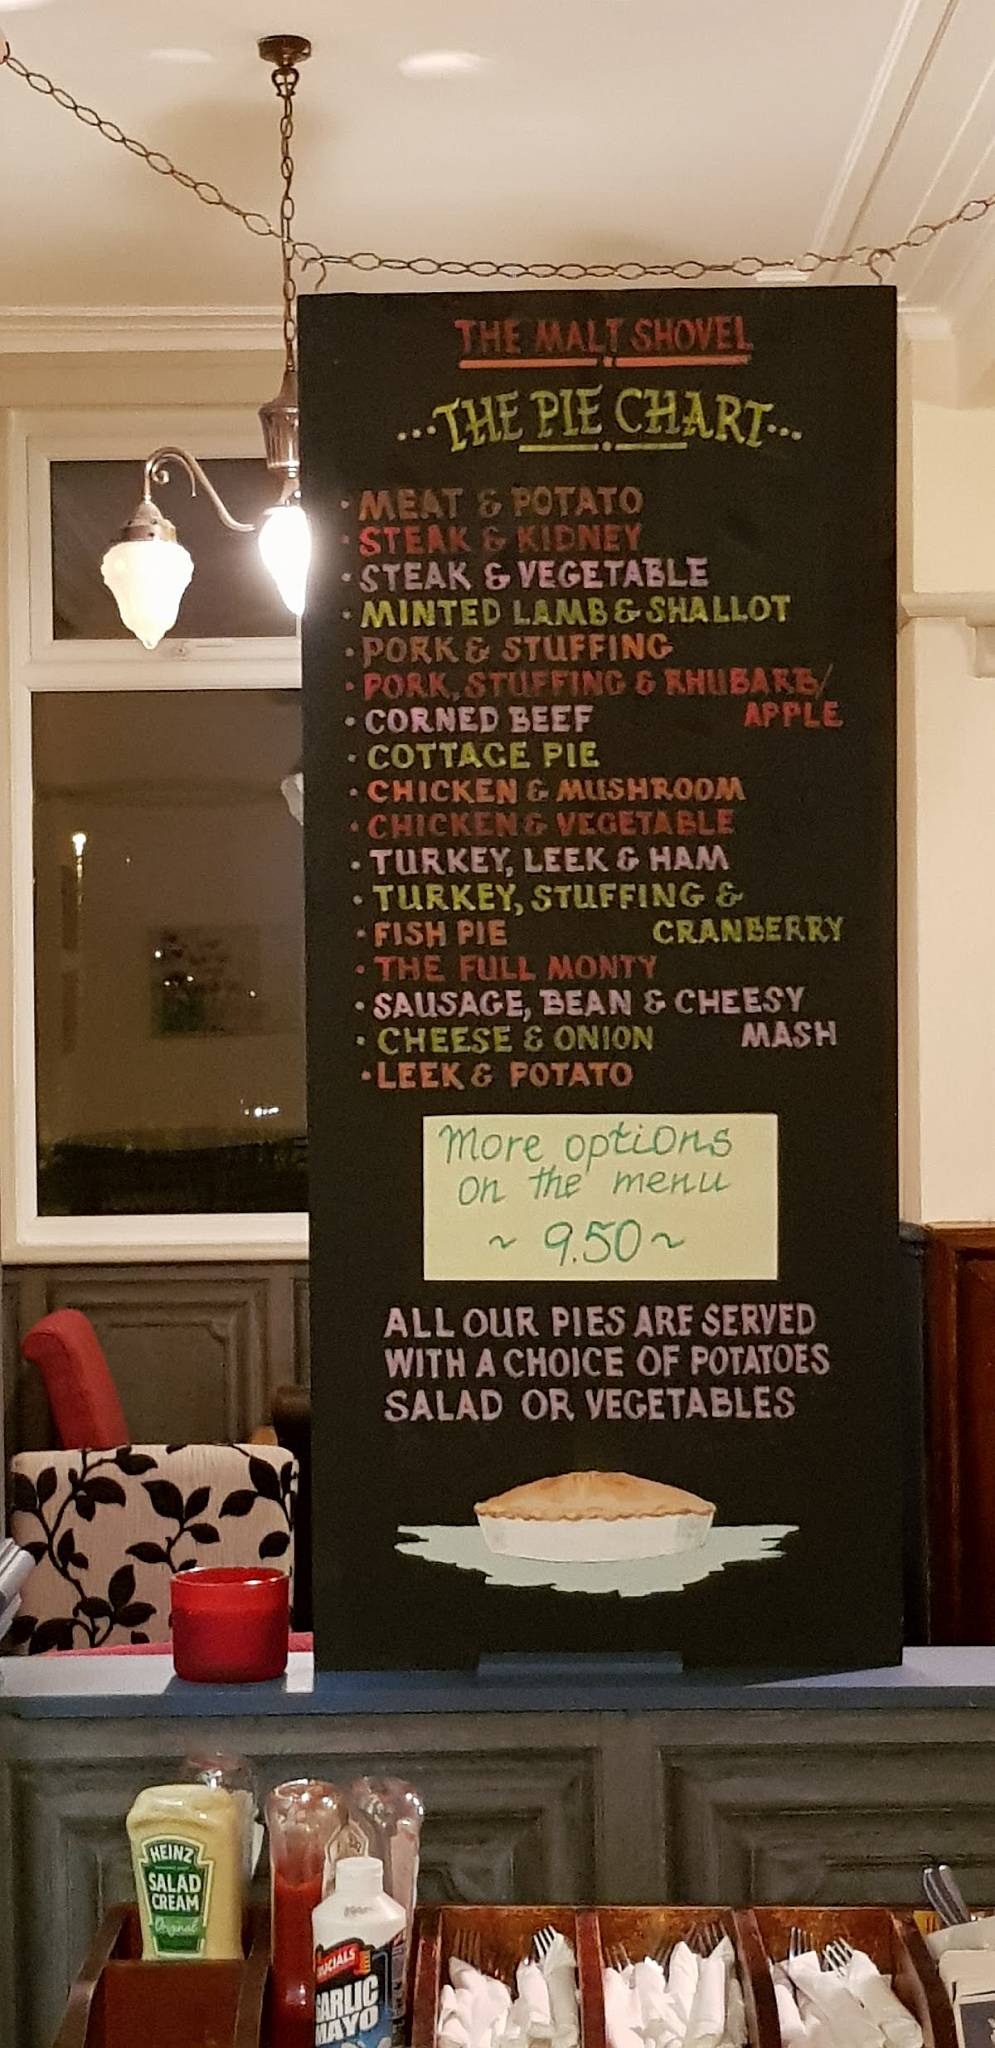 THE MALT SHOVEL
...THE PIE CHART...
• MEAT & POTATO
• STEAK & KIDNEY
• STEAK & VEGETABLE
• MINTED LAMB & SHALLOT
• PORK & STUFFING
• PORK, STUFFING & RHUBARB/
APPLE
• CORNED BEEF
• COTTAGE PIE
• CHICKEN & MUSHROOM
• CHICKEN & VEGETABLE
• TURKEY, LEEK & HAM
• TURKEY, STUFFING &
CRANBERRY
• FISH PIE
• THE FULL MONTY
• SAUSAGE, BEAN & CHEESY
MASH
• CHEESE & ONION
• LEEK & POTATO
More options
on the menu
~ 9.50 ~
ALL OUR PIES ARE SERVED
WITH A CHOICE OF POTATOES
SALAD OR VEGETABLES
HEINZ
SALAD
CREAM
Original
GARLIC
MAYO